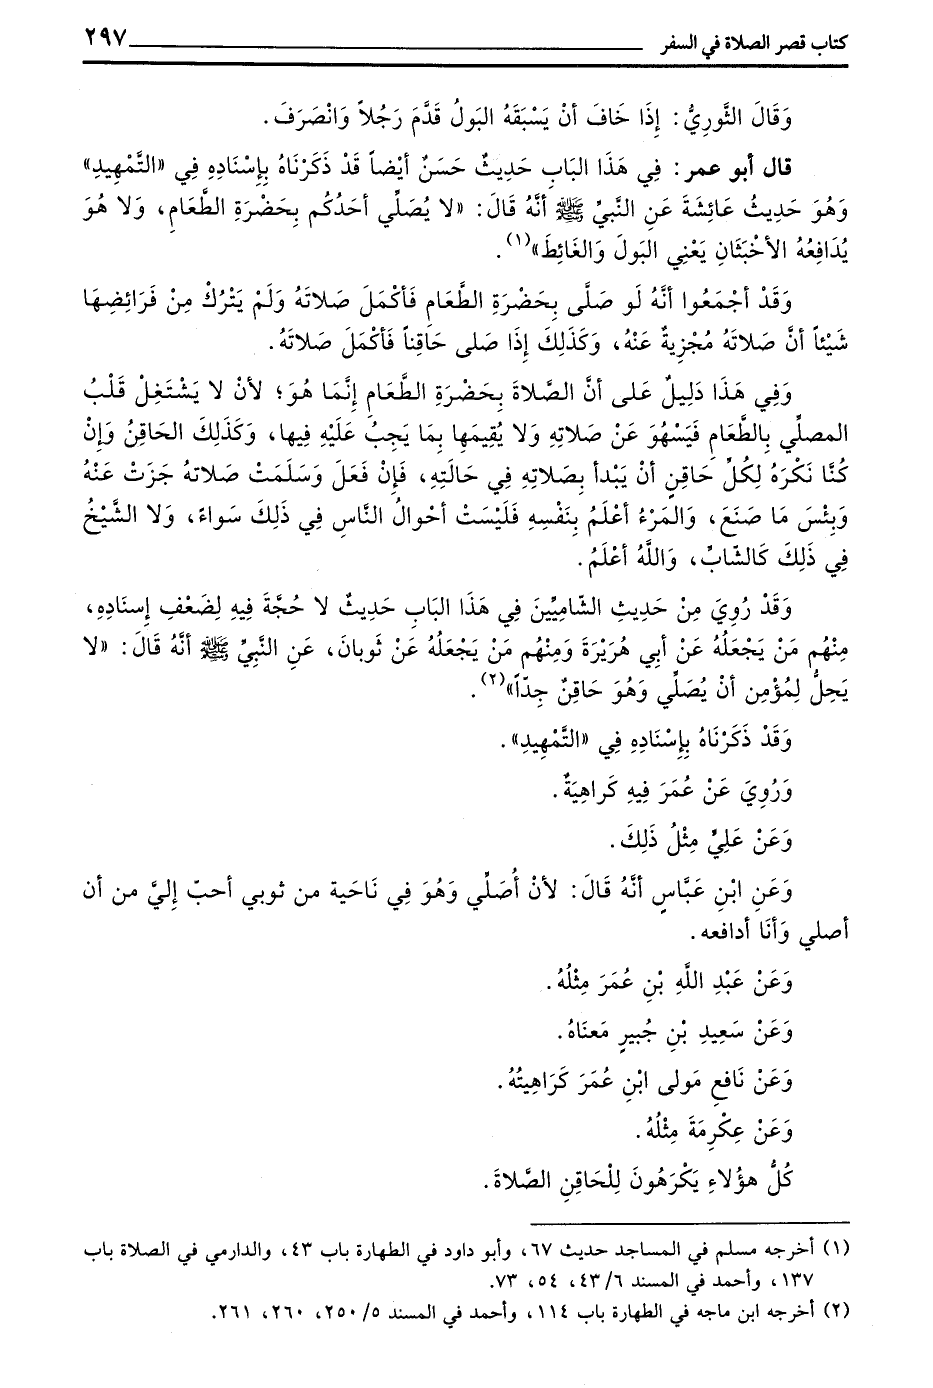 كتاب قصر الصلاة في السفر ٢٩٧
وَقَالَ الثَّورِيُّ: إِذَا خَافَ أنْ يَسْبَقَهُ البَولُ قَدَّمَ رَجُلاً وَانْصَرَفَ.
قال أبو عمر: فِي هَذَا البَابِ حَدِيثٌ حَسَنٌ أيْضاً قَدْ ذَكَرْنَاهُ بِإِسْنَادِهِ فِي «التَّمْهِيدِ»
وَهُوَ حَدِيثُ عَائِشَةَ عَنِ النَّبِيِّ ﷺ أنَّهُ قَالَ: «لا يُصَلِّي أحَدُكُم بِحَضْرَةِ الطَّعَامِ، وَلا هُوَ
يُدَافِعُهُ الأخْبَثَانِ يَعْنِي البَولَ وَالغَائِطَ»(١).
وَقَدْ أجْمَعُوا أنَّهُ لَو صَلَّى بِحَضْرَةِ الطَّعَامِ فَأكْمَلَ صَلاتَهُ وَلَمْ يَتْرُكْ مِنْ فَرَائِضِهَا
شَيْئاً أنَّ صَلاتَهُ مُجْزِيةٌ عَنْهُ، وَكَذَلِكَ إِذَا صَلى حَاقِناً فَأكْمَلَ صَلاتَهُ.
وَفِي هَذَا دَلِيلٌ عَلى أنَّ الصَّلاةَ بِحَضْرَةِ الطَّعَامِ إِنَّمَا هُوَ؛ لأنْ لا يَشْتَغِلْ قَلْبُ
المصلِّي بِالطَّعَامِ فَيَسْهُوَ عَنْ صَلاتِهِ وَلا يُقِيمَها بِمَا يَجِبُ عَلَيْهِ فِيها، وَكَذَلِكَ الحَاقِنُ وَإِنْ
كُنَّا نَكْرَهُ لِكُلِّ حَاقِنٍ أنْ يَبْدأ بِصَلاتِهِ فِي حَالَتِهِ، فَإِنْ فَعَلَ وَسَلَمَتْ صَلاتهُ جَزَتْ عَنْهُ
وَبِئْسَ مَا صَنَعَ، وَالمَرْءُ أعْلَمُ بِنَفْسِهِ فَلَيْسَتْ أحْوالُ النَّاسِ فِي ذَلِكَ سَواءً، وَلا الشَّيْخُ
فِي ذَلِكَ كَالشَّابِّ، وَاللَّهُ أعْلَمُ.
وَقَدْ رُوِيَ مِنْ حَدِيثِ الشَّامِيِّينَ فِي هَذَا البَابِ حَدِيثٌ لا حُجَّةَ فِيهِ لِضَعْفِ إِسنَادِهِ،
مِنْهُم مَنْ يَجْعَلُهُ عَنْ أبِي هُرَيْرَةَ وَمِنْهُم مَنْ يَجْعَلُهُ عَنْ ثَوبانَ، عَنِ النَّبِيِّ ﷺ أنَّهُ قَالَ: «لا
يَحِلُّ لِمُؤْمِنٍ أنْ يُصَلِّي وَهُوَ حَاقِنٌ جِدّاً»(٢).
وَقَدْ ذَكَرْنَاهُ بِإِسْنَادِهِ فِي «التَّمْهِيدِ».
وَرُوِيَ عَنْ عُمَرَ فِيهِ كَراهِيَةٌ.
وَعَنْ عَلِيٍّ مِثْلُ ذَلِكَ.
وَعَنِ ابْنِ عَبَّاسٍ أنَّهُ قَالَ: لأنْ أُصَلِّي وَهُوَ فِي نَاحَية من ثوبي أحبّ إِليَّ من أن
أصلي وَأنَا أدافعه.
وَعَنْ عَبْدِ اللَّهِ بْنِ عُمَرَ مِثْلُهُ.
وَعَنْ سَعِيدِ بْنِ جُبيرٍ مَعنَاهُ.
وَعَنْ نَافِعٍ مَولى ابْنِ عُمَرَ كَرَاهِيتُهُ.
وَعَنْ عِكْرِمَةَ مِثْلُهُ.
كُلُّ هؤُلاءِ يَكْرَهُونَ لِلْحَاقِنِ الصَّلاةَ.
(١) أخرجه مسلم في المساجد حديث ٦٧، وأبو داود في الطهارة باب ٤٣، والدارمي في الصلاة باب
١٣٧، وأحمد في المسند ٤٣/٦، ٥٤، ٧٣.
(٢) أخرجه ابن ماجه في الطهارة باب ١١٤، وأحمد في المسند ٢٥٠/٥، ٢٦٠، ٢٦١.